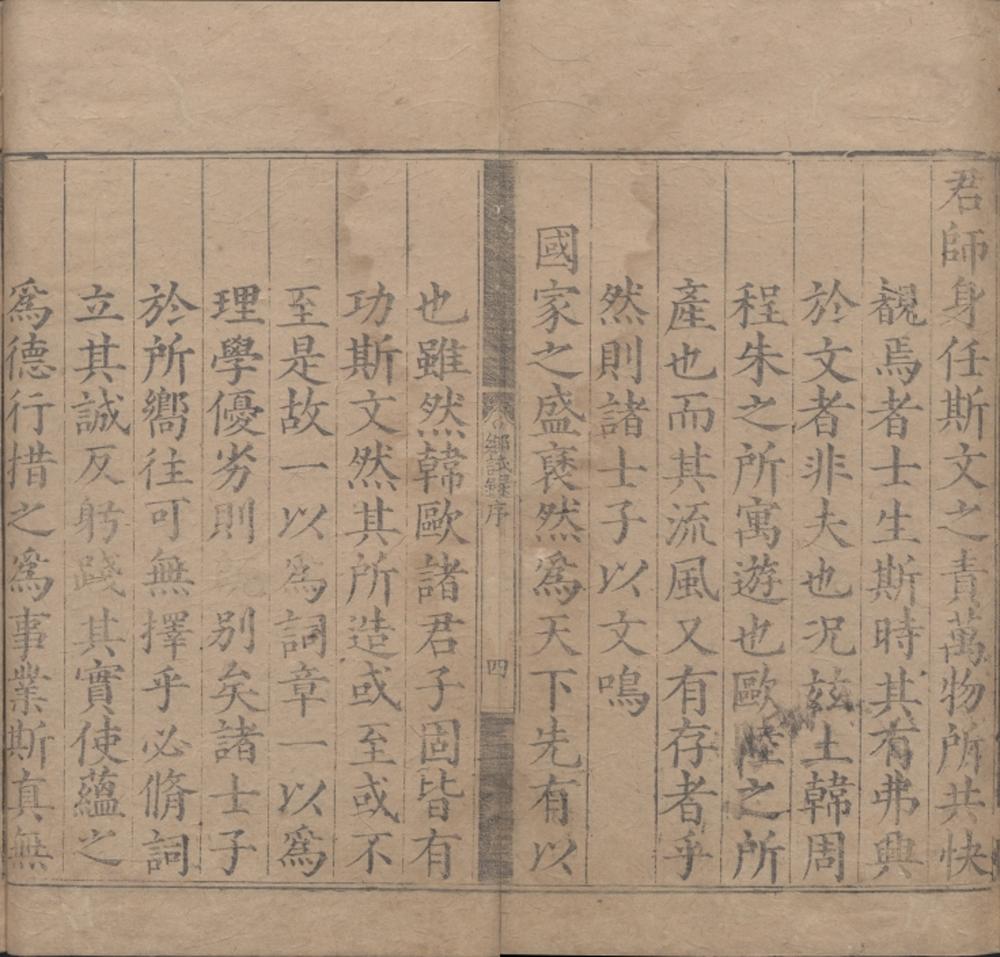 君師身任斯文之責萬物所共快
覩焉者士生斯時其有弗興
於文者非夫也况玆土韓周
程朱之所寓遊也歐陸之所
產也而其流風又有存者乎
然則諸士子以文鳴
國家之盛褎然爲天下先有以
鄉試錄序
四
也雖然韓歐諸君子固皆有
功斯文然其所造或至或不
至是故一以爲詞章一以爲
理學優劣則別矣諸士子
於所嚮往可無擇乎必脩詞
立其誠反躬踐其實使蘊之
爲德行措之爲事業斯真無